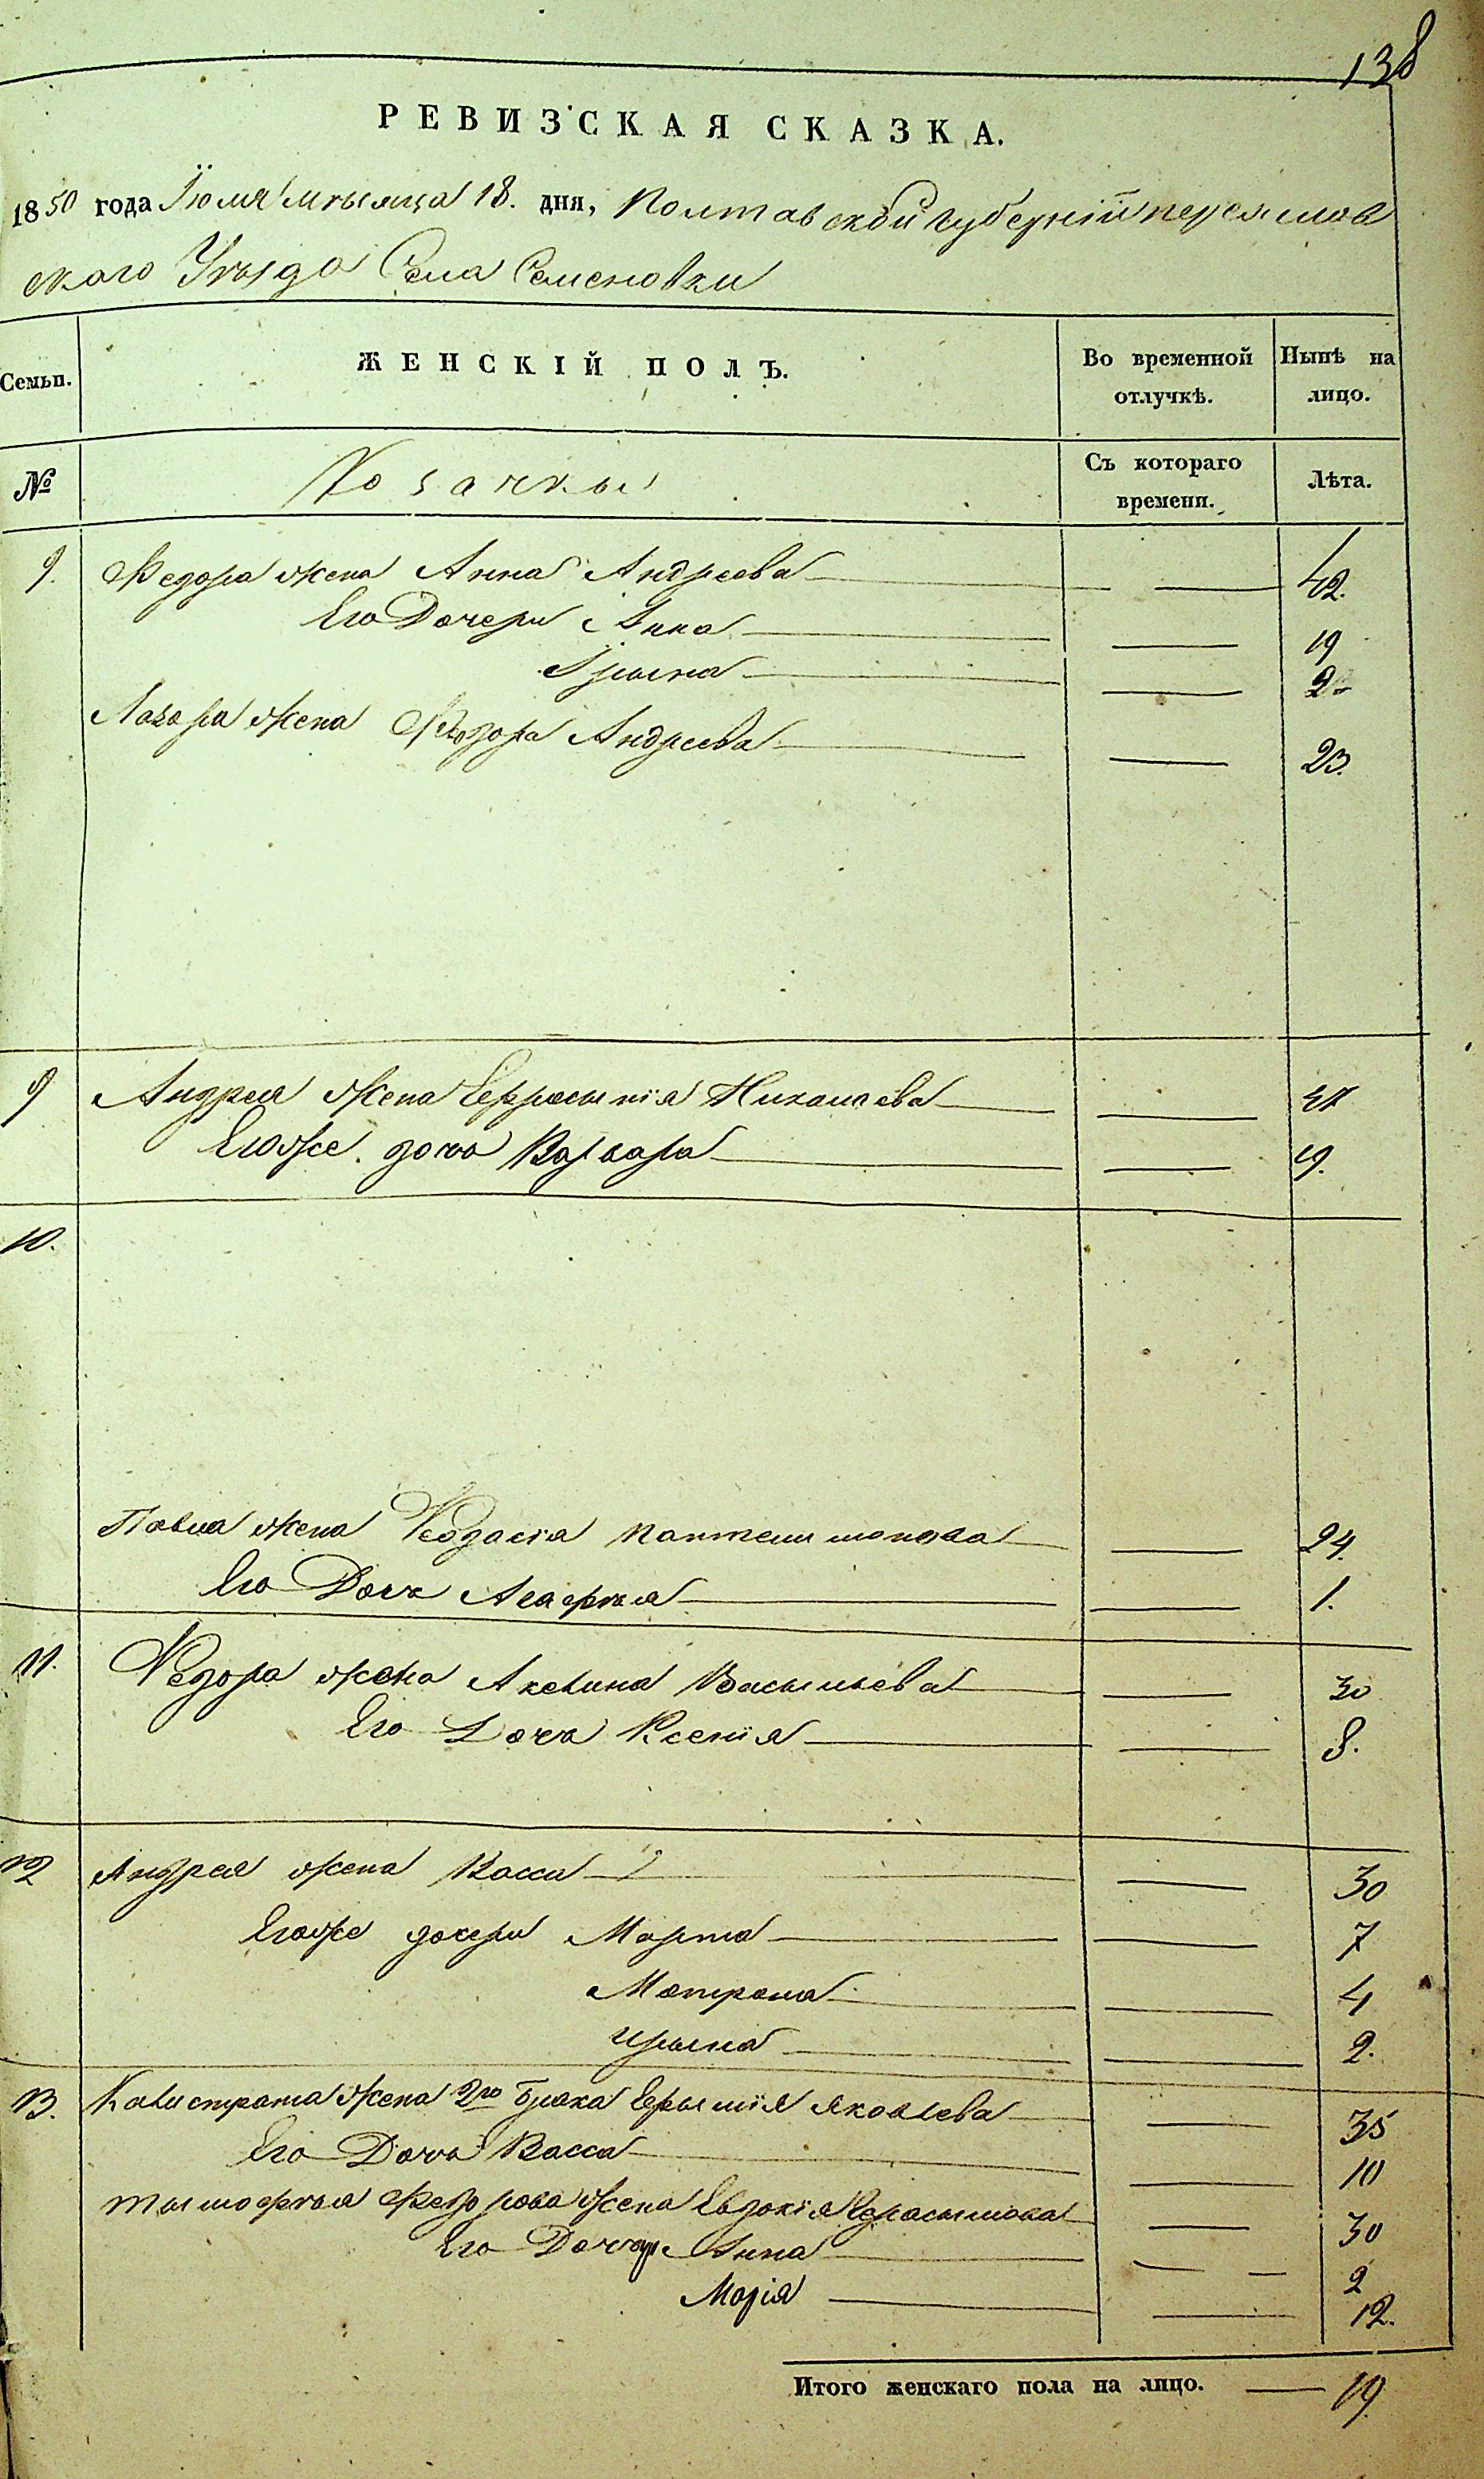 138
РЕВИЗСКАЯ СКАЗКА.
1850 года Іюля мѣсяца 18. дня, Полтавской губерніи переяслов
ского Уѣзда Села Семеновки
Семьи. ЖЕНСКІЙ ПОЛЪ. Во временной отлучкѣ. Нынѣ на лицо.
№ Козачкы Съ котораго времени. Лѣта.
9. Федора жена Анна Андреева — — 42.
Его Дочери Анна — — 19
Ірына — — 2
Лазора жена Ѳедора Андреева — — 23.
9 Андрея жена Ефросынія Николаева — —
Егоже. дочь Варвара — — 19.
10.
Павла жена Ѳеодосія Пантелимонова — — 24.
Его Дочь Агафія — — 1.
11. Ѳедора жена Акелина Васыльева — — 30
Его Дочь Ксенія — — 8.
12 Андрея жена Васса — — 30
Егоже дочери Марта — — 7
Мотрона — — 4
Ирына — — 2.
13. Калистрата жена 2го брака Ефымія Яковлева — — 35
Его Дочь Васса — — 10
Тымофѣя Федорова жена Евдокія Герасымова — — 30
Его Дочери Анна — — 2
Марія — — 12.
Итого женскаго пола на лицо. — 19.